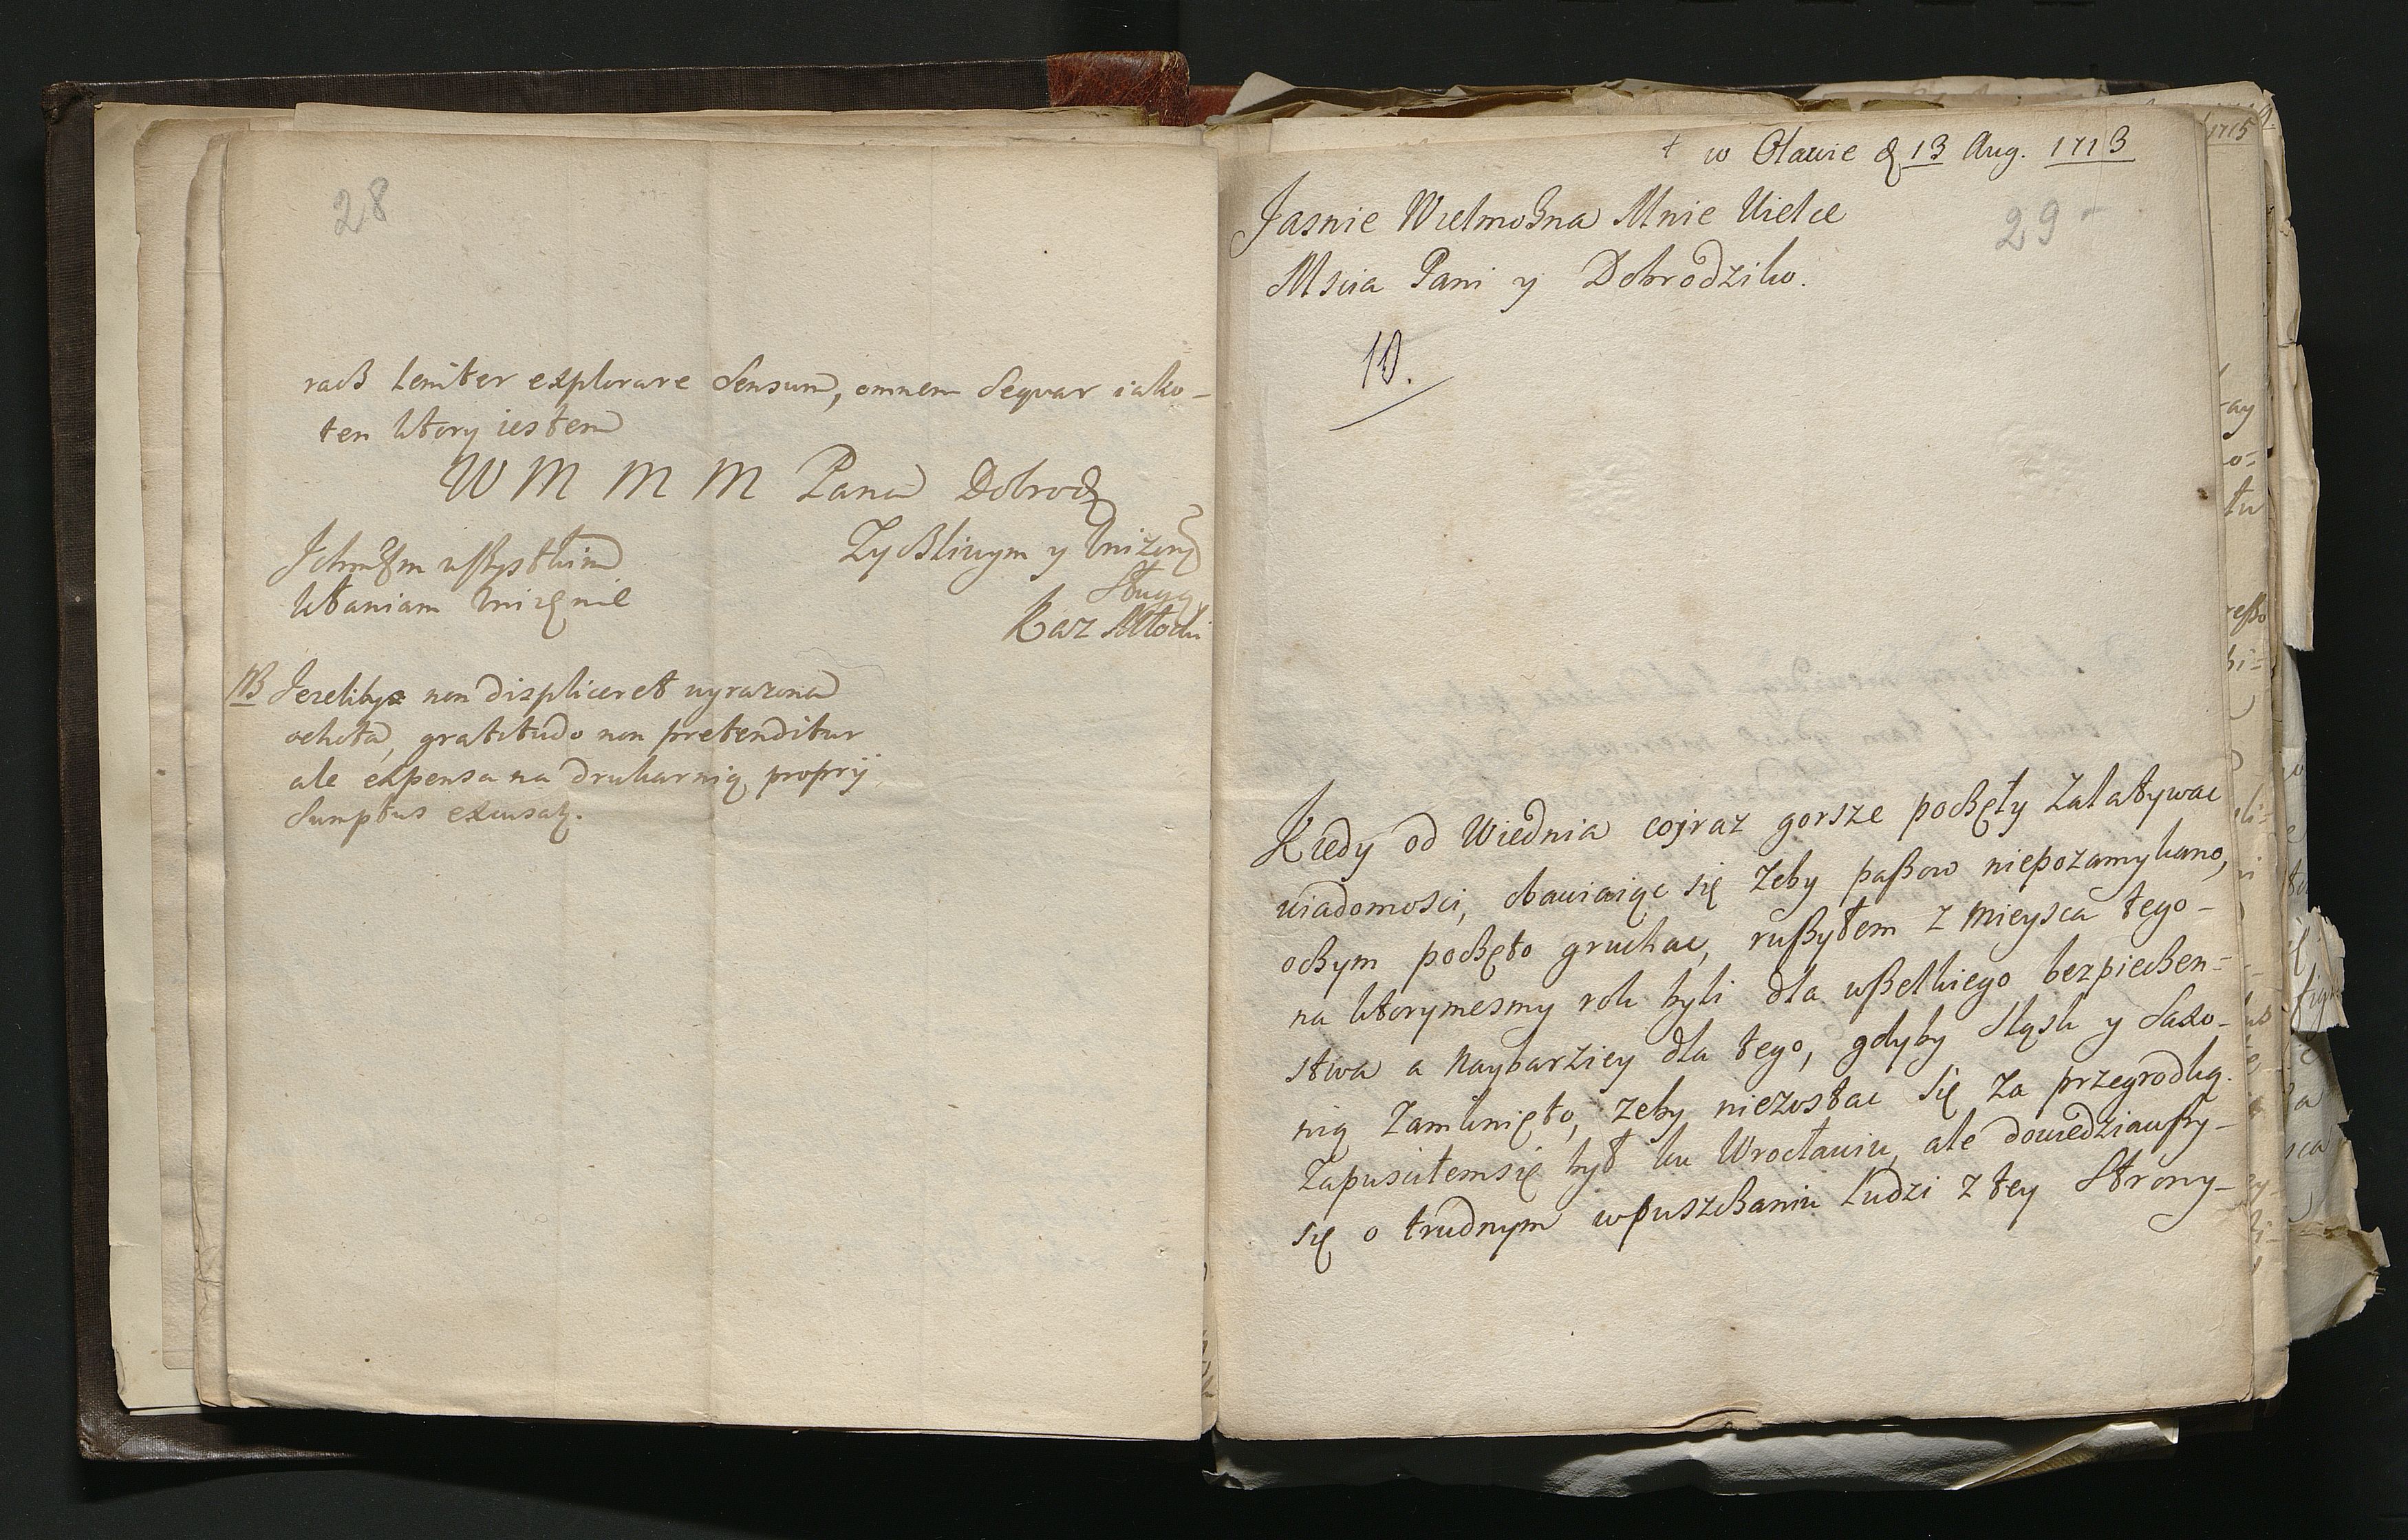 28
racß leniter explorare Sensum, omnem Seqvar iako-
ten ktory iestem
W M M M Pana Dobrodz
Zyßliwym y Unizonym
Sługą
Kaz Młocki
Ichmcm wßystkim
kłaniam Unizenie
NB Jezeliby non displiceret wyrazona
ochota, gratitudo non pretenditur
ale expensa na drukarnią proprij
Sumptus excusatz.
+ w Oławie d 13 Aug. 1713
Jasnie Wielmożna Mnie Wielce
29
Mscia Pani y Dobrodziko.
10.
Kiedy od Wiednia coraz gorsze pocßęły zalatywac
wiadomosci, obawiaiąc się zeby paßow niepozamykano,
ocßym pocßęto gruchac, rußyłem z mieysca tego-
na ktorymesmy rok byli dla wßelkiego bezpiecßen=
stwa a naybarziey dla tego, gdyby Sląsk y Saxo-
nią zamknięto, zeby niezostac się za przegrodką.
Zapusciłemsię był ku Wrocławiu, ale dowiedziawßy-
się o trudnym wpuszcßaniu ludzi z tey Strony-
1715